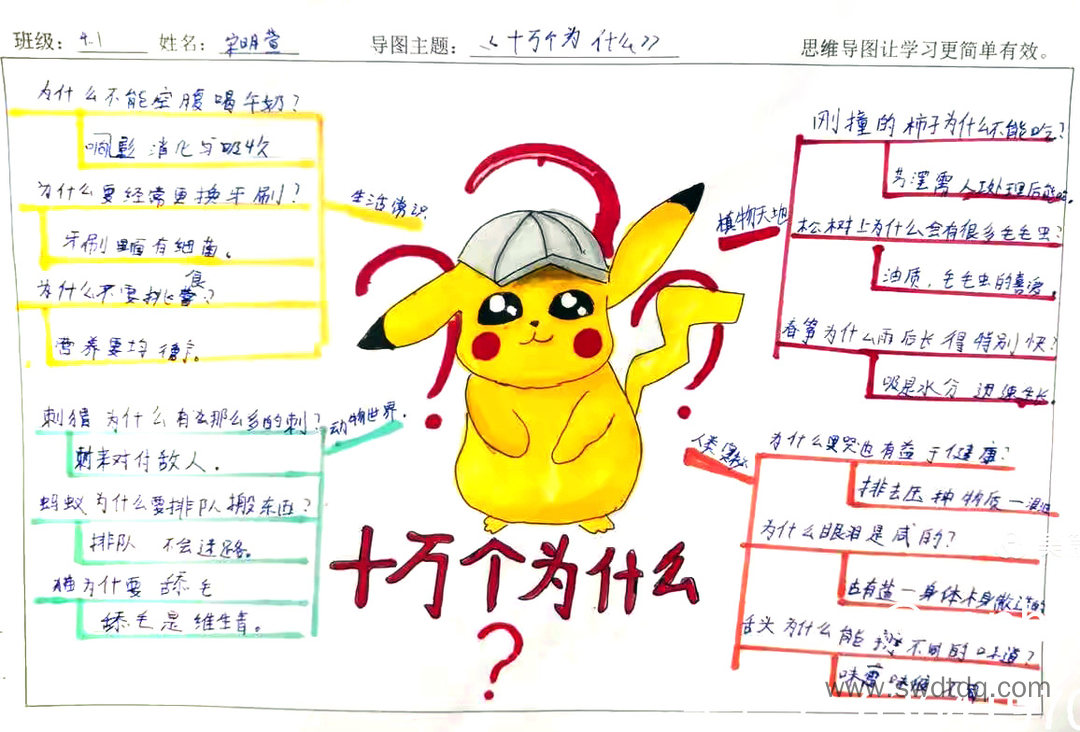 班级：4.1 姓名：宋明萱 导图主题：《十万个为什么》 思维导图让学习更简单有效。
为什么不能空腹喝牛奶？
影响消化与吸收
为什么要经常更换牙刷？
牙刷里面有细菌。
为什么不要挑食？
营养要均衡。
生活常识
刺猬为什么有那么多的刺？
刺来对付敌人。
蚂蚁为什么要排队搬东西？
排队 不会迷路。
猫为什要舔毛
舔毛是维生素。
动物世界.
十万个为什么
?
植物天地
刚撞的柿子为什么不能吃？
人工处理后能吃.
松树上为什么会有很多毛毛虫？
油质，毛毛虫的喜爱.
春笋为什么雨后长得特别快？
水分 生长.
人类奥秘
为什么哭也有益于健康？
排去 种物质一眼泪
为什么眼泪是咸的？
有盐一身体本身
舌头为什么能 不同的味道？
味蕾
www.swdtdq.com